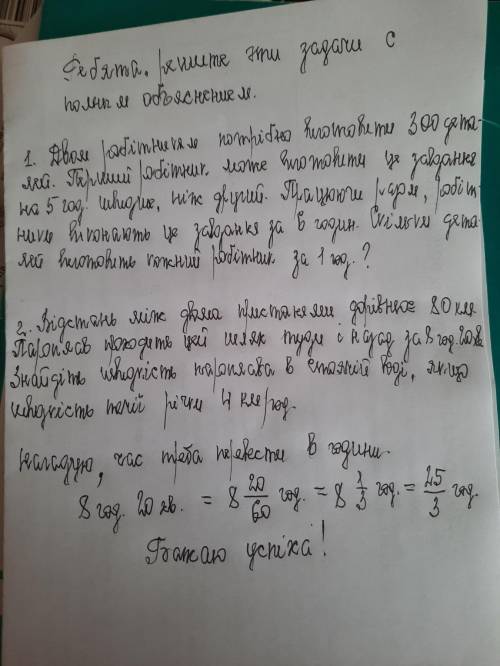 Ребята. решите эти задачи с
полным объяснением.
1. Двом робітникам потрібно виготовити 300 дета-
лей. Перший робітник може виготовити це завдання
на 5 год. швидше, ніж другий. Працюючи разом, робіт-
ники виконають це завдання за 6 годин. Скільки дета-
лей виготовить кожний робітник за 1 год.?
2. Відстань між двома пристанями дорівнює 80 км.
Пароплав проходить цей шлях туди і назад за 8 год. 20 хв.
Знайдіть швидкість пароплава в стоячій воді, якщо
швидкість течії річки 4 км/год.
Нагадую, час треба перевести в години.
8 год. 20 хв. = 8 20/60 год. = 8 1/3 год. = 25/3 год.
Бажаю успіха!